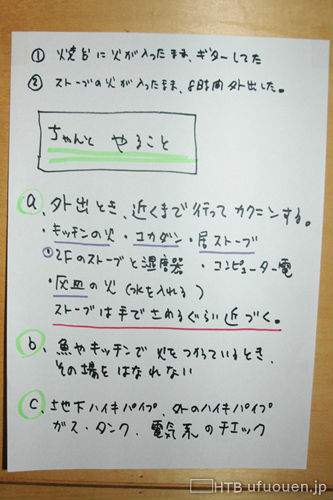 ① 焼台に火が入ったまま、ギターしてた
② ストーブの火が入ったまま、8時間外出した。
ちゃんと やること
a、外出とき、近くまで行ってカクニンする。
・キッチンの火・コカダン・居ストーブ
・2Fのストーブと湿度器 ・コンピューター電
・灰皿の火(水を入れる)
ストーブは手でさわるぐらい近づく。
b、魚やキッチンで火をつかっているとき、
その場をはなれない
c、地下ハイキパイプ、外のハイキパイプ
ガス・タンク、電気系のチェック
HTB ufuouen.jp